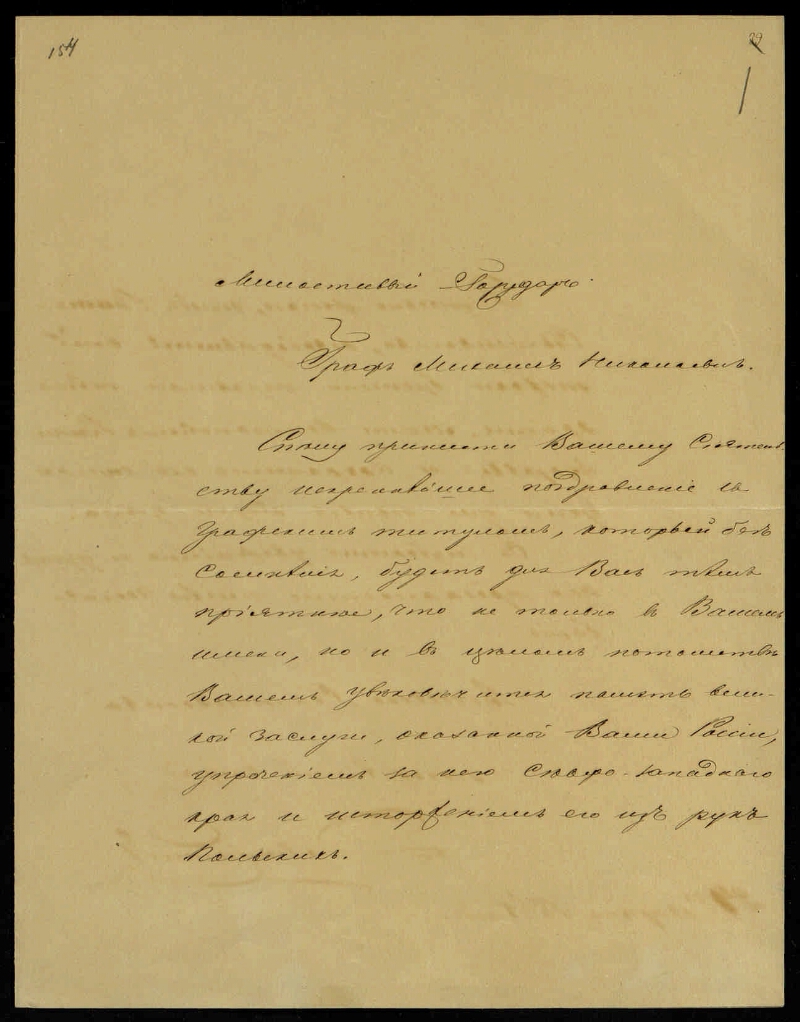 154
29
Милостивый Государь
Графъ Михаилъ Николаевичъ.
Спѣшу принести Вашему Сіятель-
ству искреннѣйшее поздравленіе съ
графскимъ титуломъ, который безъ
сомнѣнія, будетъ для Васъ тѣмъ
пріятнѣе, что не только въ Вашемъ
имени, но и въ цѣломъ потомствѣ
Вашемъ увѣковѣчится память вели-
кой заслуги, оказанной Вами Россіи,
упроченіемъ за нею Сѣверо-западнаго
края и исторженіемъ его изъ рукъ
Польскихъ.